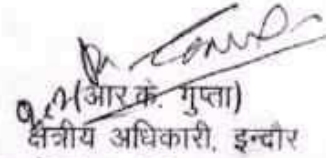 (आर.के. गुप्ता)
क्षेत्रीय अधिकारी, इन्दौर